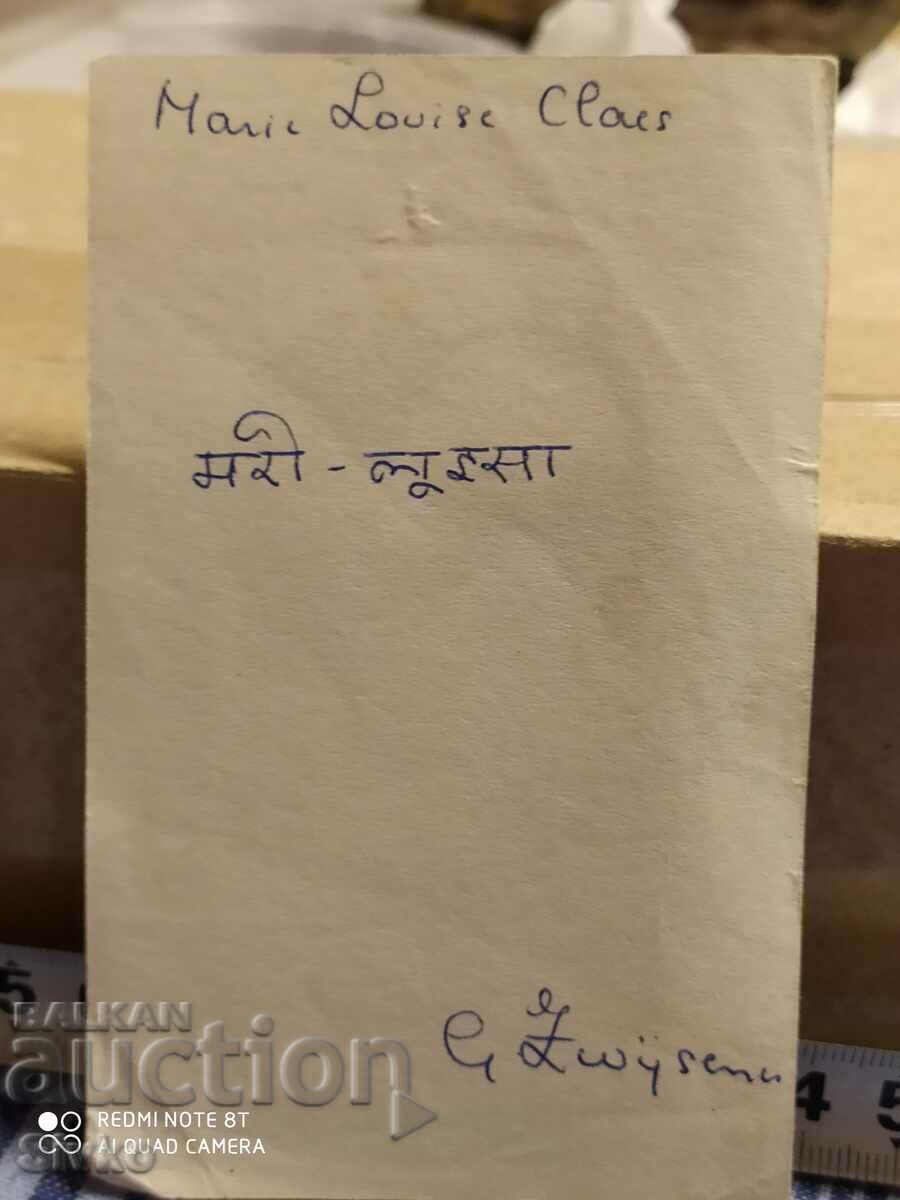 Marie Louise Claes
मरी - लूइसा
G Zwijsen
5
4 5
BALKAN
auction
REDMI NOTE 8T
AI QUAD CAMERA